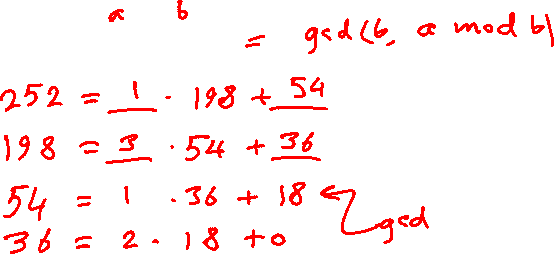 a b
= gcd(b, a mod b)
252 = 1 · 198 + 54
198 = 3 · 54 + 36
54 = 1 · 36 + 18
gcd
36 = 2 · 18 + 0